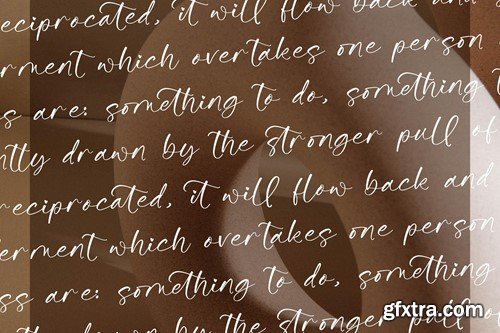 reciprocated, it will flow back and
erment which overtakes one person
s are: something to do, something t
ntly drawn by the stronger pull of
reciprocated, it will flow back and
derment which overtakes one person
ss are: something to do, something
ntly drawn by the stronger pull o
gfxtra.com